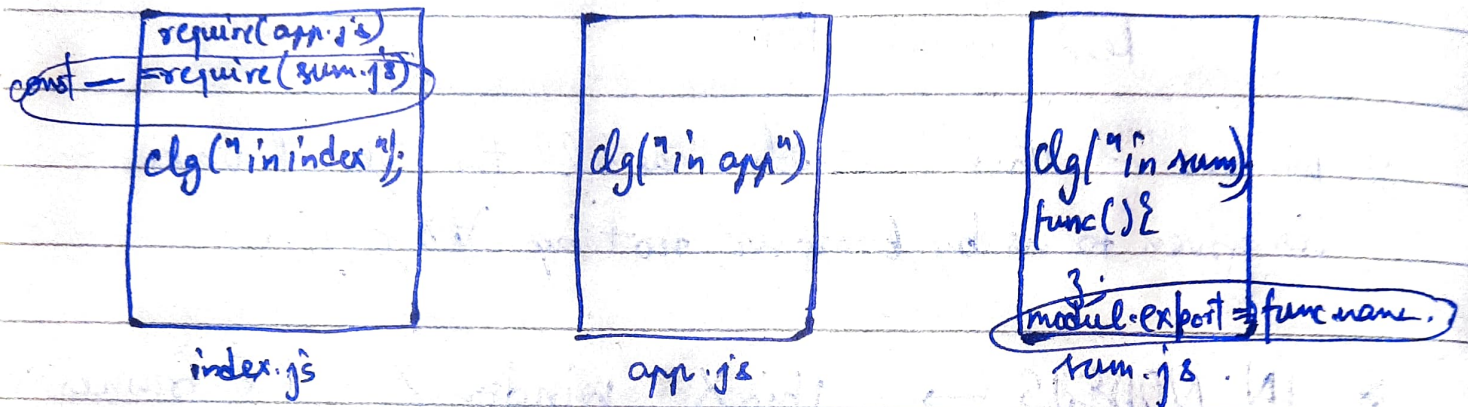 require(app.js)
const — =require(sum.js)
clg("in index");
index.js
clg("in app")
app.js
clg("in sum);
func(){
}.
modul.export = func name.
sum.js.